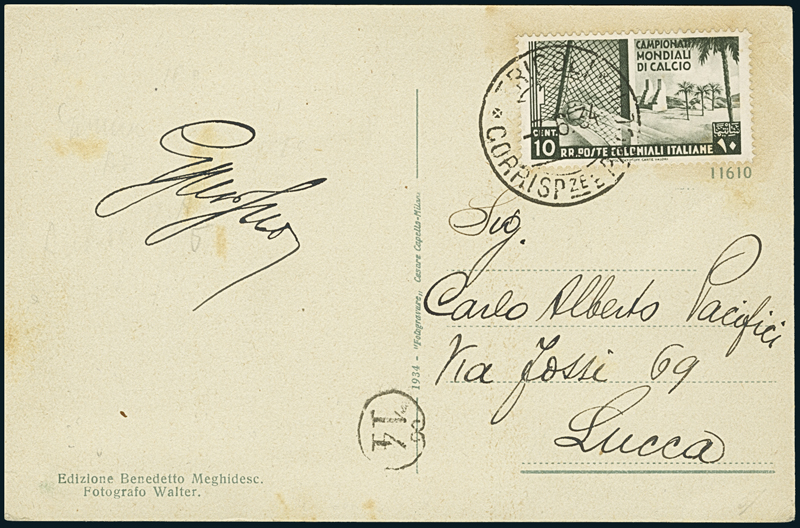 CAMPIONATI
MONDIALI
DI CALCIO
CENT.
10 R.R. POSTE COLONIALI ITALIANE ١٠
TRIPOLI
CORRISP.ZE
11610
Sig.
Carlo Alberto Pacifici
Via Fossi 69
Lucca
1934 - "Fotogravure,, Cesare Capello-Milano
14
Edizione Benedetto Meghidesc.
Fotografo Walter.